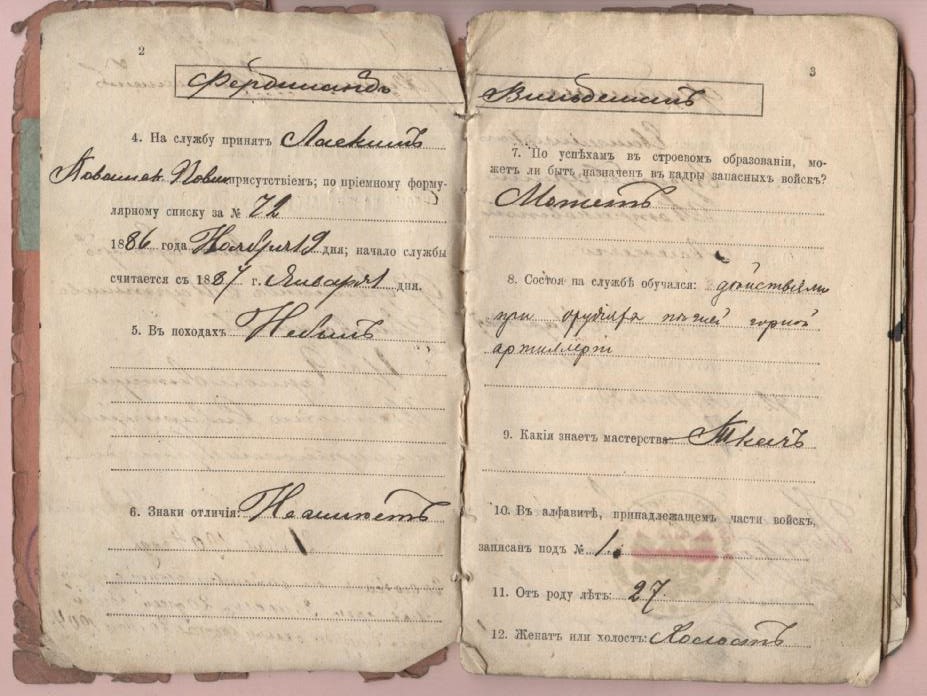 2
Фердинандъ
4. На службу принятъ Ласкимъ
присутствіемъ; по пріемному форму-
лярному списку за № 72
1886 года Ноября 9 дня; начало службы
считается съ 1887 г. Января 1 дня.
5. Въ походахъ Небылъ
6. Знаки отличія: Неимѣетъ
3
7. По успѣхамъ въ строевомъ образованіи, мо-
жетъ ли быть назначенъ въ кадры запасныхъ войскъ?
Можетъ
8. Состоя на службѣ обучался: дѣйствіями
при орудіяхъ пѣшей горной
артиллеріи
9. Какія знаетъ мастерства: Ткачъ
10. Въ алфавитѣ, принадлежащемъ части войскъ,
записанъ подъ № 1.
11. Отъ роду лѣтъ: 27.
12. Женатъ или холостъ: Холостъ